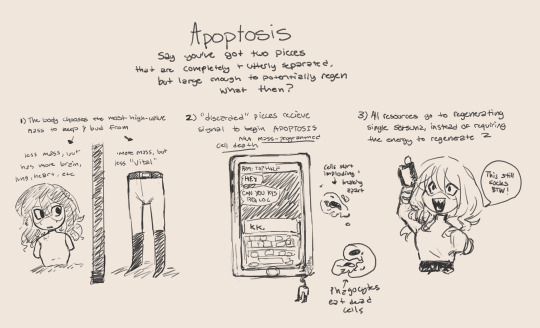 Apoptosis
Say you've got two pieces
that are completely + utterly separated,
but large enough to potentially regen
what then?
1) The body chooses the most high-value
mass to keep / bud from
less mass, but
has more brain,
lung, heart, etc
more mass, but
less "vital"
2) "discarded" pieces recieve
signal to begin APOPTOSIS
AKA mass-programmed
cell death
HEY
CAN YOU
KK.
cells start
imploding
breaking
apart
Phagocytes
eat dead
cells
3) All resources go to regenerating
single      , instead of requiring
the energy to regenerate 2
This still
sucks
BTW!